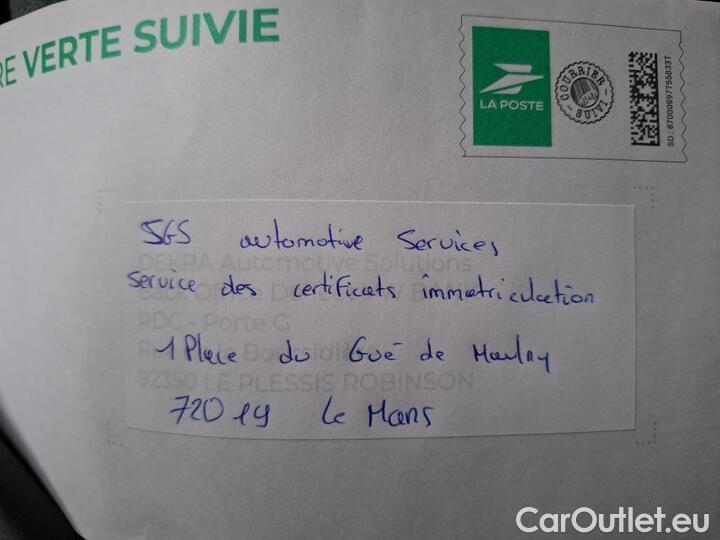 RE VERTE SUIVIE
LA POSTE
COURRIER
SUIVI
SD : 87000997755833T
SGS automotive Services
DEKRA Automotive Solutions
Service des certificats immatriculation
Back Of
PDC - Porte G
1 Place du Gué de Maulny
la Boursidière
92350 LE PLESSIS ROBINSON
72019 Le Mans
CarOutlet.eu